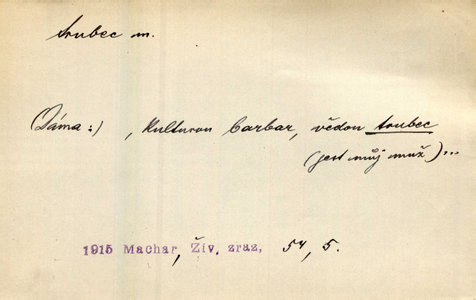 trubec m.
(Dáma:) , kulturou barbar, vědou trubec
(jest můj muž)...
1915 Machar, Živ. zraz, 54, 5.